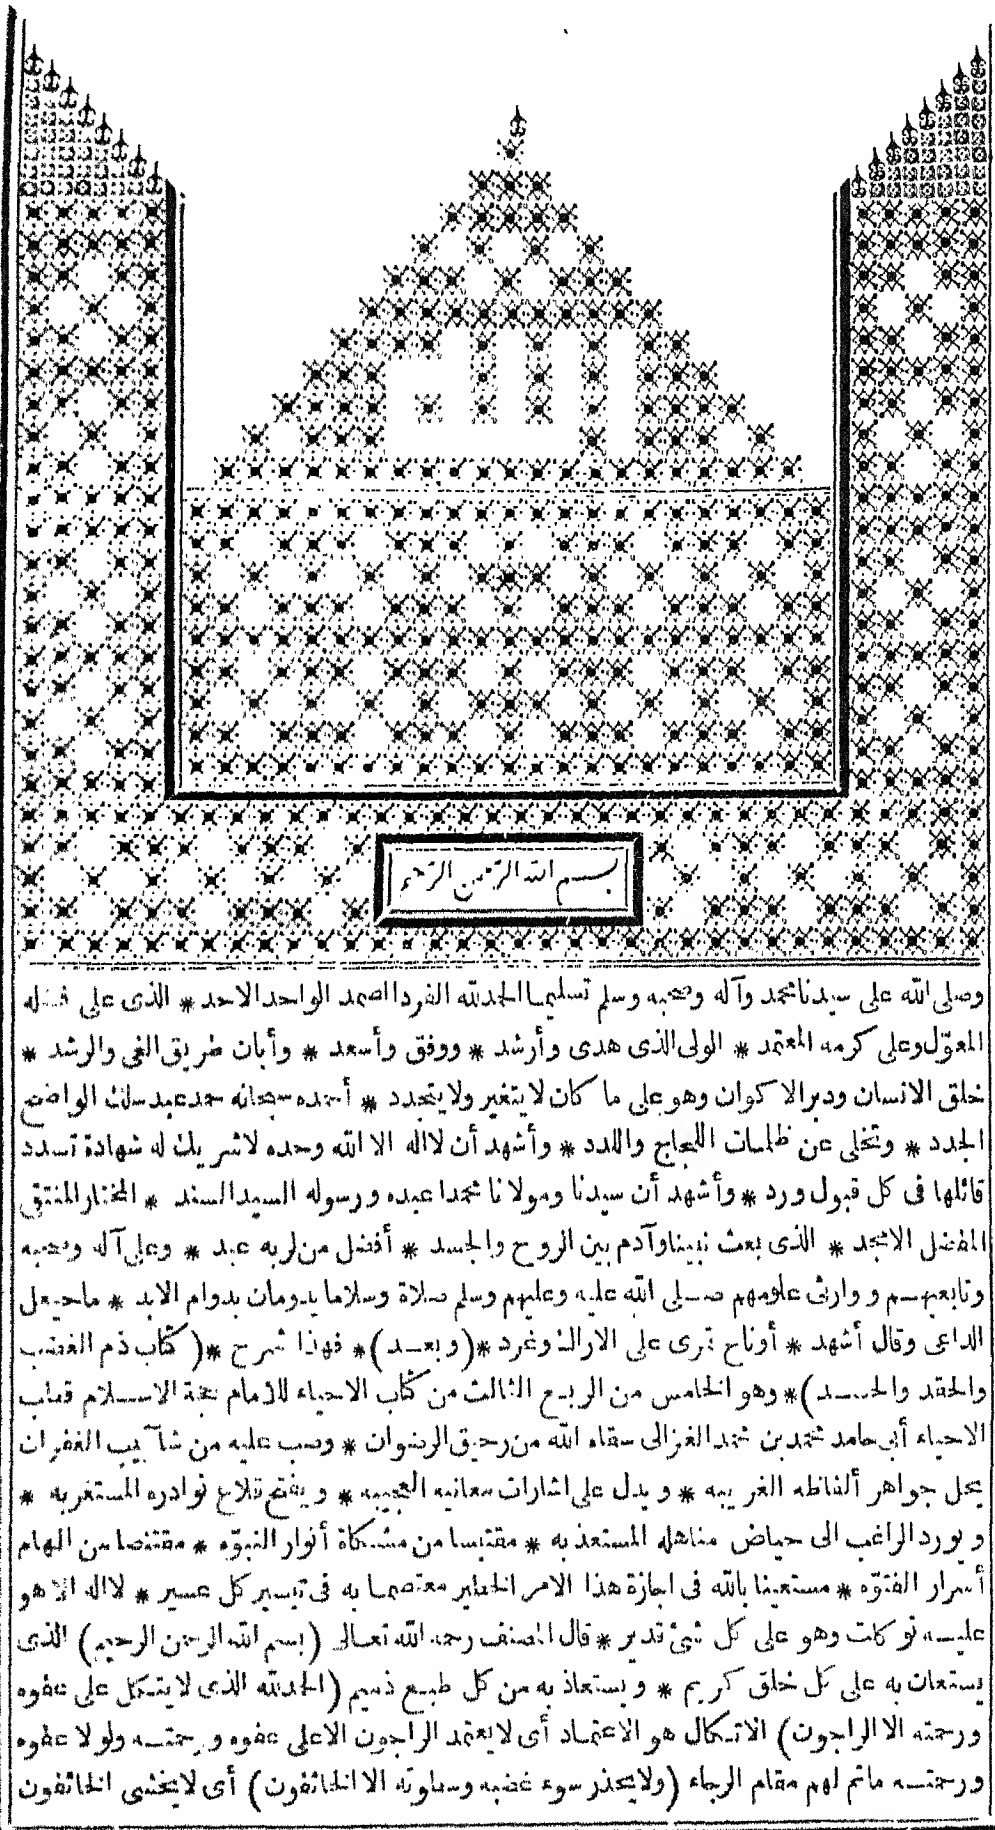 بسم الله الرحمن الرحيم
وصلى الله على سيدنا محمد وآله وصحبه وسلم تسليما الحمد لله الفرد الصمد الواحد الاحد * الذى على فضله
المعوّل وعلى كرمه المعتمد * الولى الذى هدى وأرشد * ووفق وأسعد * وأبان طريق الغى والرشد *
خلق الانسان ودبر الاكوان وهو على ما كان لا يتغير ولا يتجدد * أحمده سبحانه حمد عبد سلك الواضح
الجدد * وتخلى عن ظلمات اللجاج واللدد * وأشهد أن لا اله الا الله وحده لا شريك له شهادة تسدد
قائلها فى كل قبول ورد * وأشهد أن سيدنا ومولانا محمدا عبده ورسوله السيد السند * المختار المنتقى
المفضل الامجد * الذى بعث نبينا وآدم بين الروح والجسد * أفضل من لربه عبد * وعلى آله وصحبه
وتابعيهم ووارثى علومهم صلى الله عليه وعليهم وسلم صلاة وسلاما يدومان بدوام الابد * ما حيعل
الداعى وقال أشهد * أو ناح قمرى على الاراك وغرد *(وبعد)* فهذا شرح *(كتاب ذم الغضب
والحقد والحسد)* وهو الخامس من الربع الثالث من كتاب الاحياء للامام حجة الاسلام قطب
الاحياء أبى حامد محمد بن محمد الغزالى سقاه الله من رحيق الرضوان * وصب عليه من شآبيب الغفران
يحل جواهر ألفاظه الغريبه * ويدل على اشارات معانيه العجيبه * ويفتح قلاع نوادره المستغربه *
ويورد الراغب الى حياض مناهله المستعذبه * مقتبسا من مشكاة أنوار النبوّه * مقتنصا من الهام
أسرار الفتوّه * مستعينا بالله فى اجازة هذا الامر الخطير معتصما به فى تيسير كل عسير * لا اله الا هو
عليه توكلت وهو على كل شئ قدير * قال المصنف رحمه الله تعالى (بسم الله الرحمن الرحيم) الذى
يستعان به على كل خلق كريم * ويستعاذ به من كل طبع ذميم (الحمد لله الذى لا يتكل على عفوه
ورحمته الا الراجون) الاتكال هو الاعتماد أى لا يعتمد الراجون الا على عفوه ورحمته ولولا عفوه
ورحمته ما تم لهم مقام الرجاء (ولا يحذر سوء غضبه وسطوته الا الخائفون) أى لا يخشى الخائفون